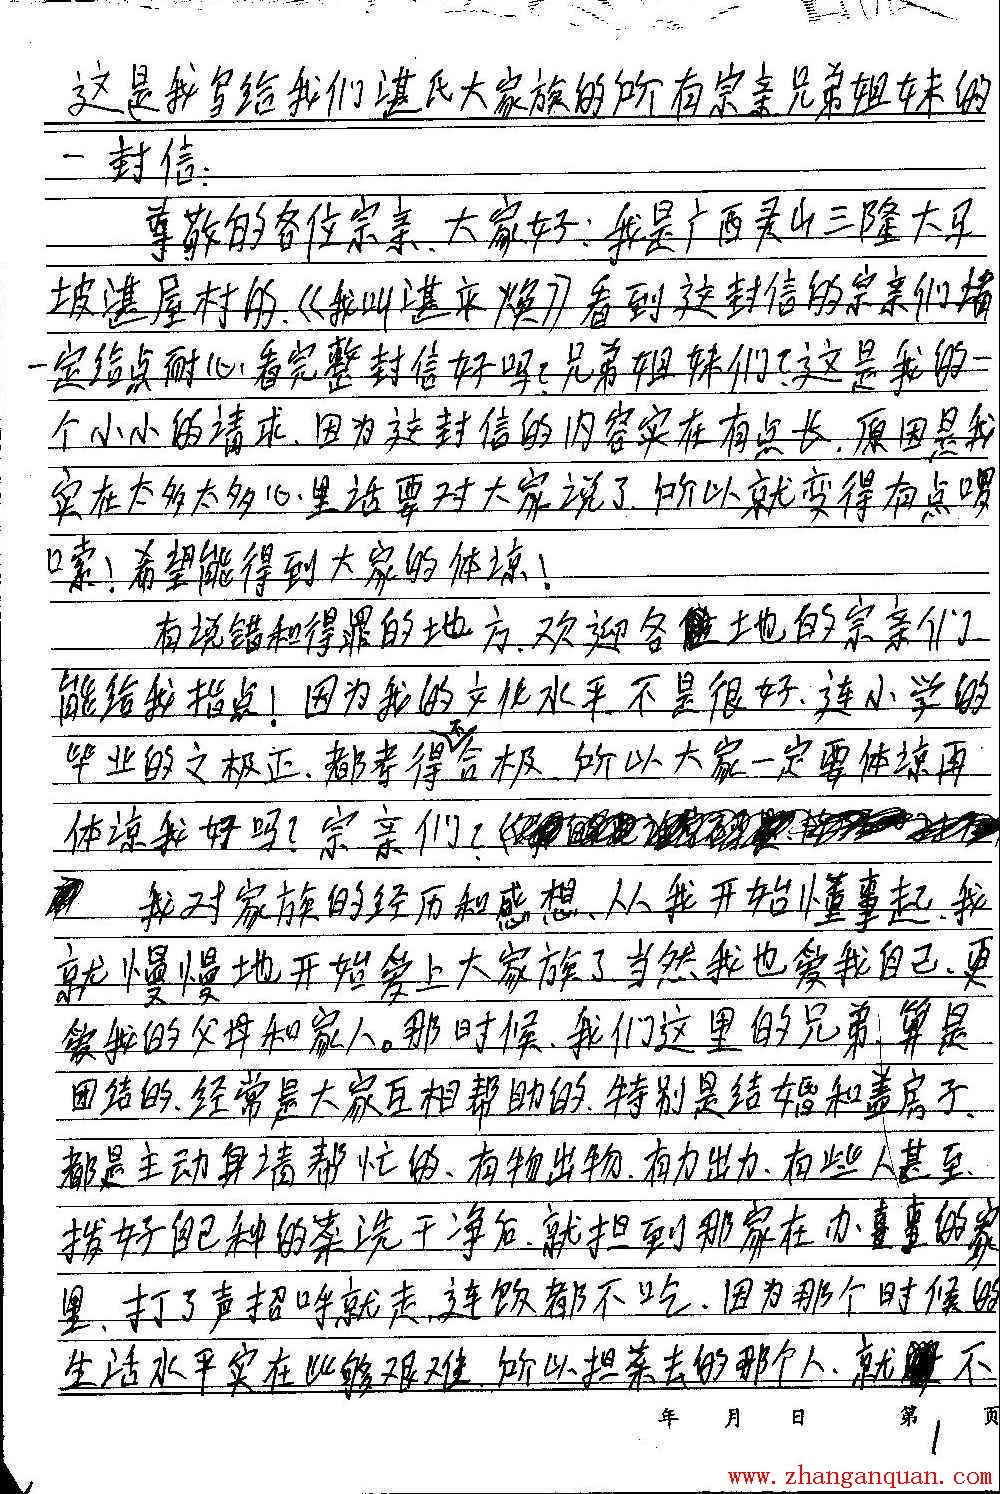 这是我写给我们湛氏大家族的所有宗亲兄弟姐妹的
一封信:
尊敬的各位宗亲、大家好:我是广西灵山三隆大马
坡湛屋村的、《我叫湛平焕》看到这封信的宗亲们请
一定给点耐心、看完整封信好吗?兄弟姐妹们?这是我的一
个小小的请求、因为这封信的内容实在有点长、原因是我
实在太多太多心里话要对大家说了、所以就变得有点啰
嗦!希望能得到大家的体谅!
有说错和得罪的地方、欢迎各土地的宗亲们
能给我指点!因为我的文化水平不是很好、连小学的
毕业的之极正、都考得不合极、所以大家一定要体谅再
体谅我好吗?宗亲们?
我对家族的经历和感想、从我开始懂事起、我
就慢慢地开始爱上大家族了、当然我也爱我自己、更
爱我的父母和家人。那时候、我们这里的兄弟、算是
团结的、经常是大家互相帮助的、特别是结婚和盖房子、
都是主动身请帮忙的、有物出物、有力出力、有些人甚至、
拨好自己种的菜洗干净后、就担到那家在办喜事的家
里、打了声招呼就走、连饭都不吃、因为那个时候的
生活水平实在够艰难、所以担菜去的那个人、就不
年 月 日 第 页
1
www.zhanganquan.com